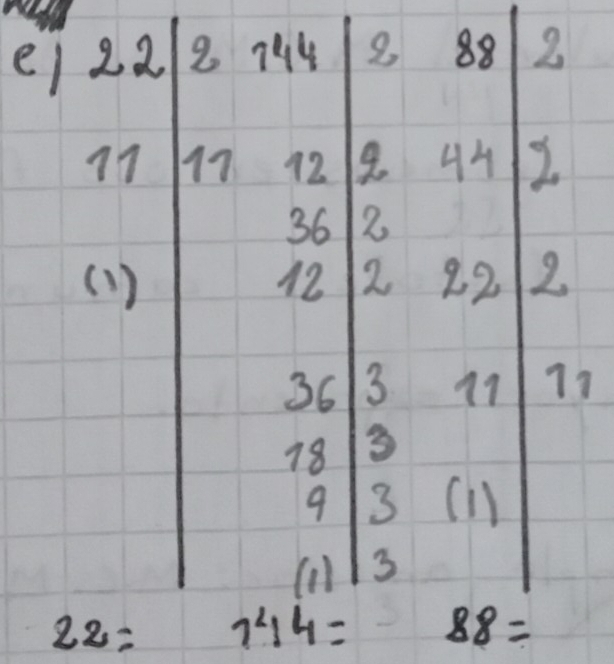 e) 22 | 2 144 | 2 88 | 2
11 | 11 12 | 2 44 | 2
36 | 2
(1) 12 | 2 22 | 2
36 | 3 11 | 11
18 | 3
9 | 3 (1)
(1) | 3
22= 144= 88=